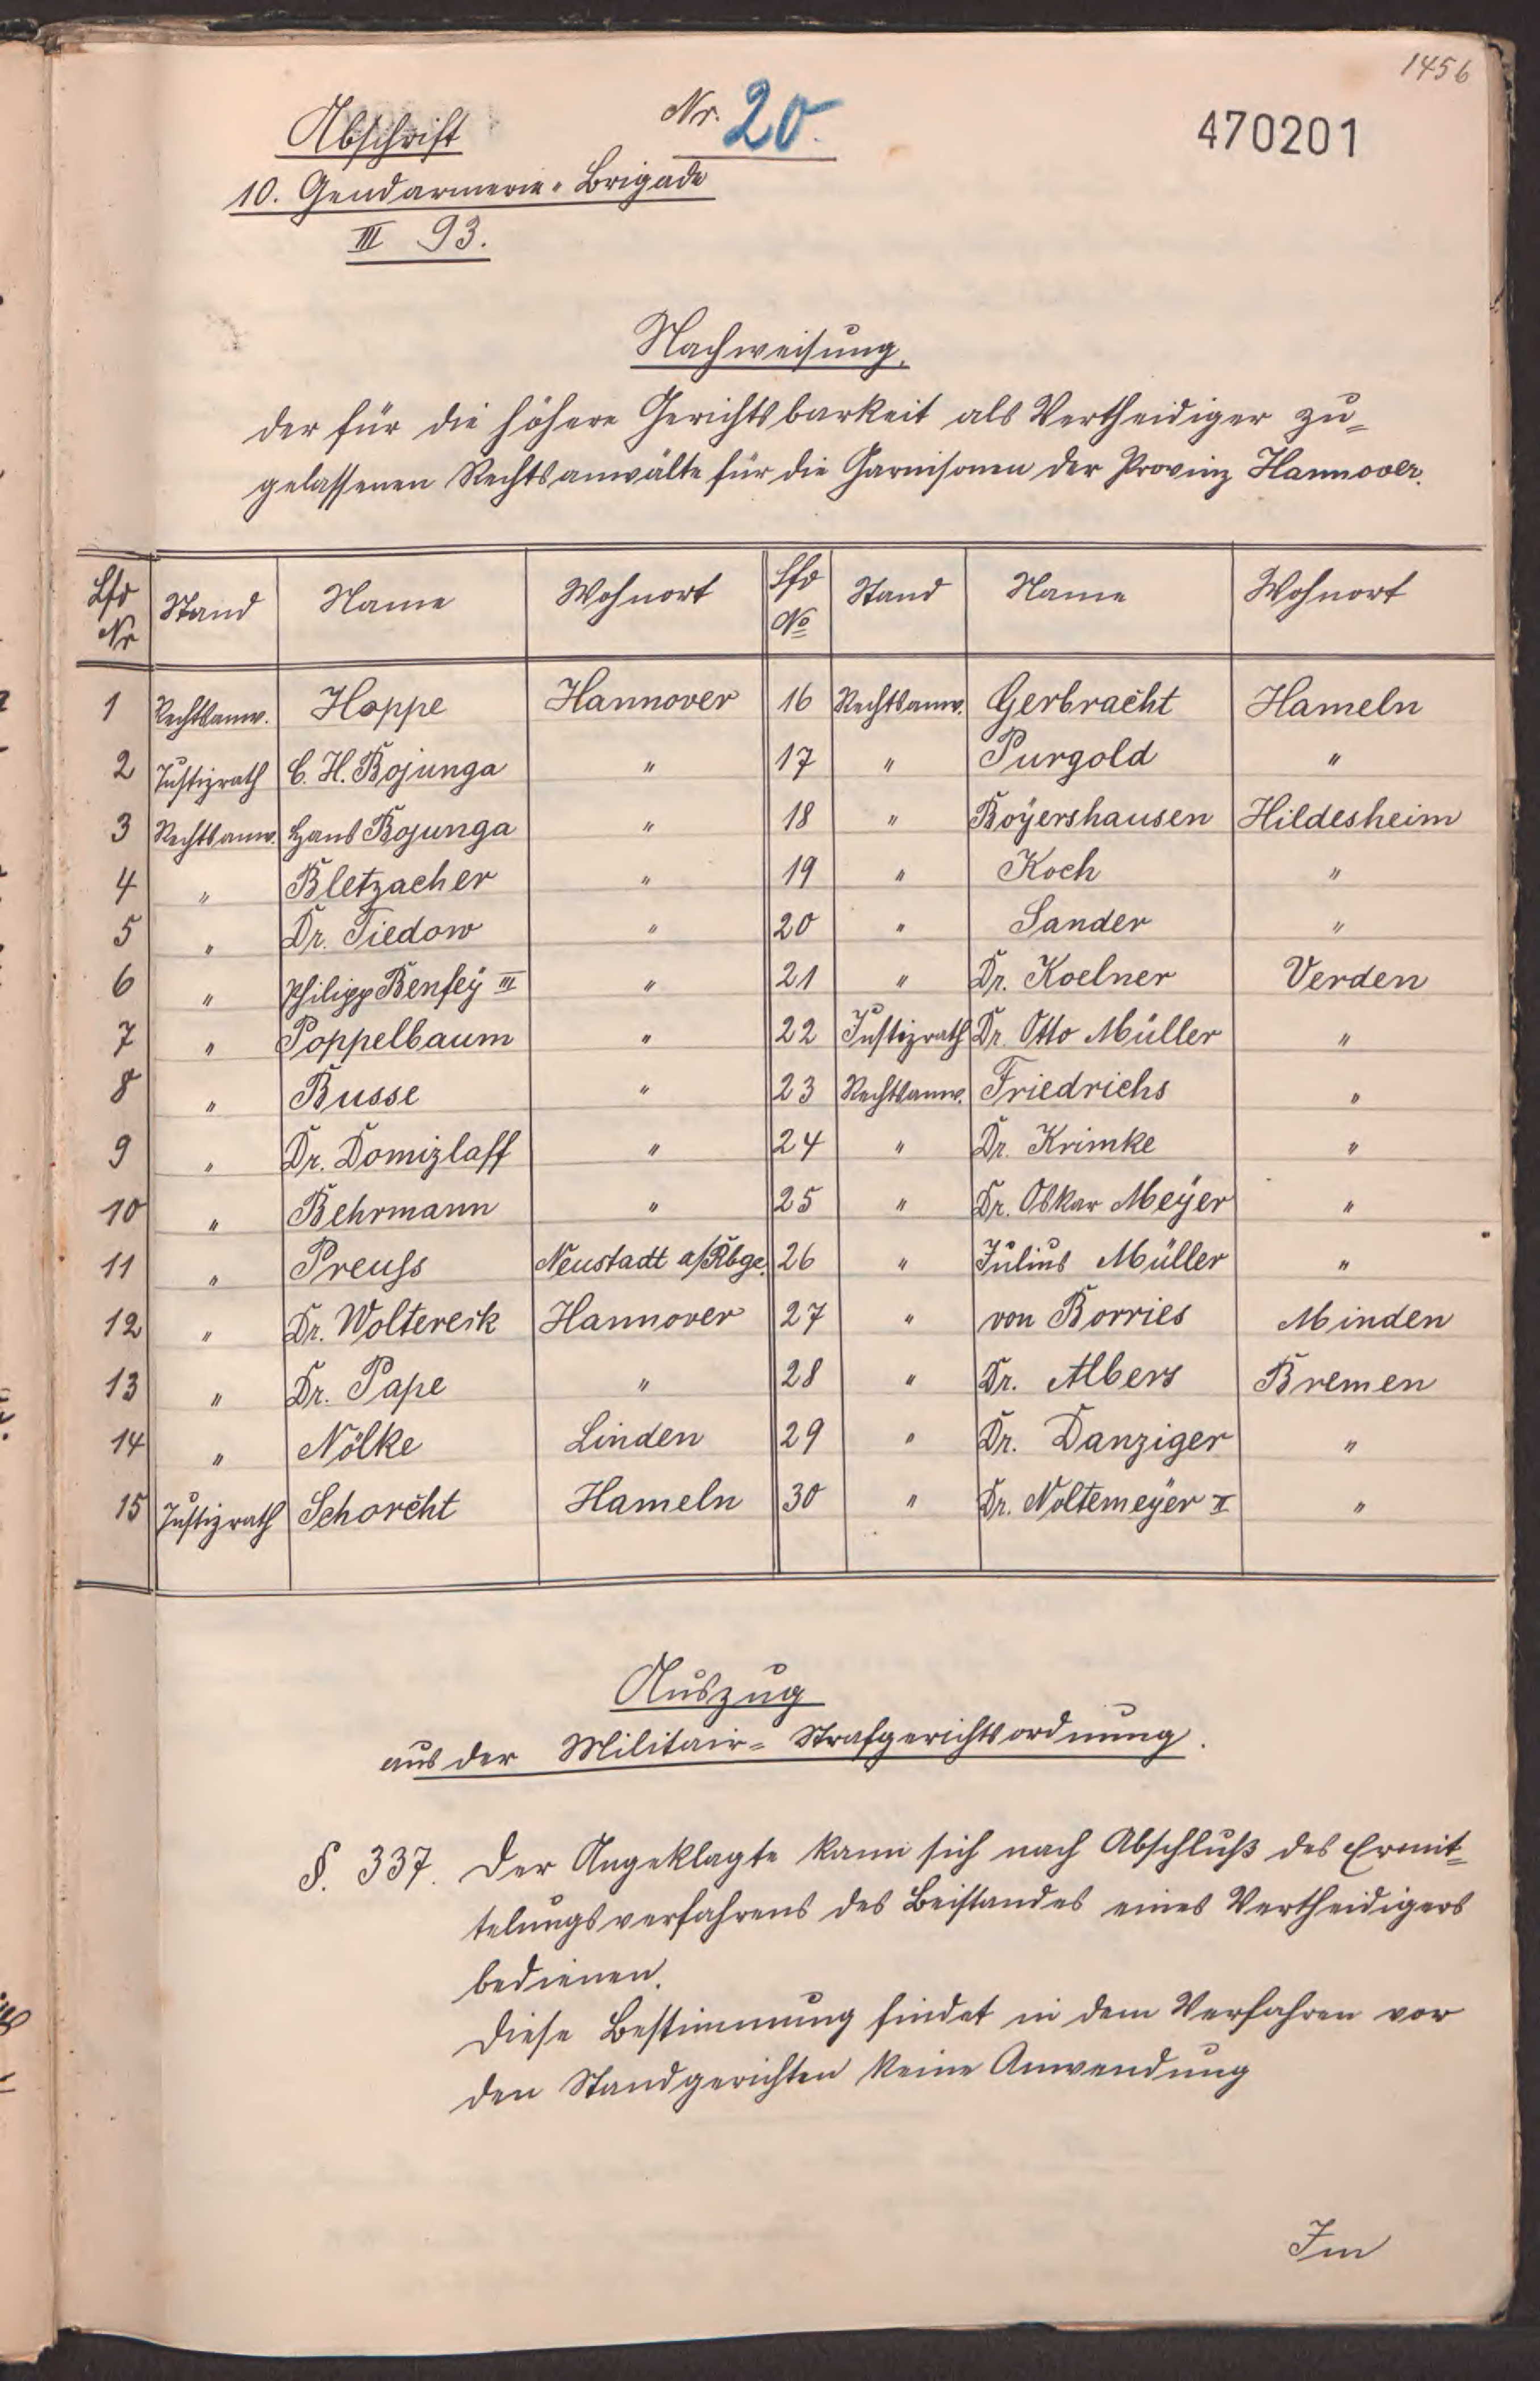 1456
Abschrift
Nr. 20.
470201
10. Gendarmerie-Brigade
III 93.
Nachweisung.
der für die höhere Gerichtsbarkeit als Vertheidiger zu-
gelassenen Rechtsanwälte für die Garnisonen der Provinz Hannover.
Lfd Nr | Stand | Name | Wohnort | Lfd No | Stand | Name | Wohnort
1 | Rechtsanw. | Hoppe | Hannover | 16 | Rechtsanw. | Gerbracht | Hameln
2 | Justizrath | C. H. Bojunga | " | 17 | " | Purgold | "
3 | Rechtsanw. | Hans Bojunga | " | 18 | " | Boyershausen | Hildesheim
4 | " | Bletzacher | " | 19 | " | Koch | "
5 | " | Dr. Tiedow | " | 20 | " | Sander | "
6 | " | Philipp Benfey III | " | 21 | " | Dr. Koelner | Verden
7 | " | Poppelbaum | " | 22 | Justizrath | Dr. Otto Müller | "
8 | " | Busse | " | 23 | Rechtsanw. | Friedrichs | "
9 | " | Dr. Domizlaff | " | 24 | " | Dr. Krimke | "
10 | " | Behrmann | " | 25 | " | Dr. Oskar Meyer | "
11 | " | Preuss | Neustadt a/Rbge. | 26 | " | Julius Müller | "
12 | " | Dr. Woltereck | Hannover | 27 | " | von Borries | Minden
13 | " | Dr. Pape | " | 28 | " | Dr. Albers | Bremen
14 | " | Nölke | Linden | 29 | " | Dr. Danziger | "
15 | Justizrath | Schorcht | Hameln | 30 | " | Dr. Noltemeyer II | "
Auszug
aus der Militair-Strafgerichtsordnung.
§. 337. Der Angeklagte kann sich nach Abschluß des Ermit-
telungsverfahrens des Beistandes eines Vertheidigers
bedienen.
Diese Bestimmung findet in dem Verfahren vor
den Standgerichten keine Anwendung
Im